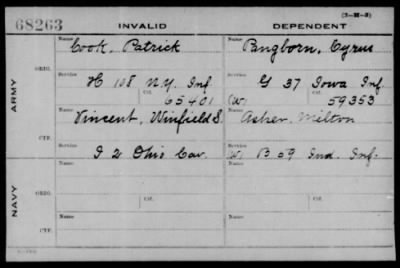 68263 INVALID DEPENDENT (3-M-3)
Name Cook, Patrick Name Pangborn, Cyrus
ORIG.
Service H 108 N.Y. Inf Service G 37 Iowa Inf.
Ctf. 65401 (W) Ctf. 59353
ARMY
Name Vincent, Winfield S. Name Asher, Milton
CTF.
Service I 2 Ohio Cav. Service (W) B 59 Ind. Inf.
Name Ctf. Name Ctf.
ORIG.
NAVY
Name Name
CTF.